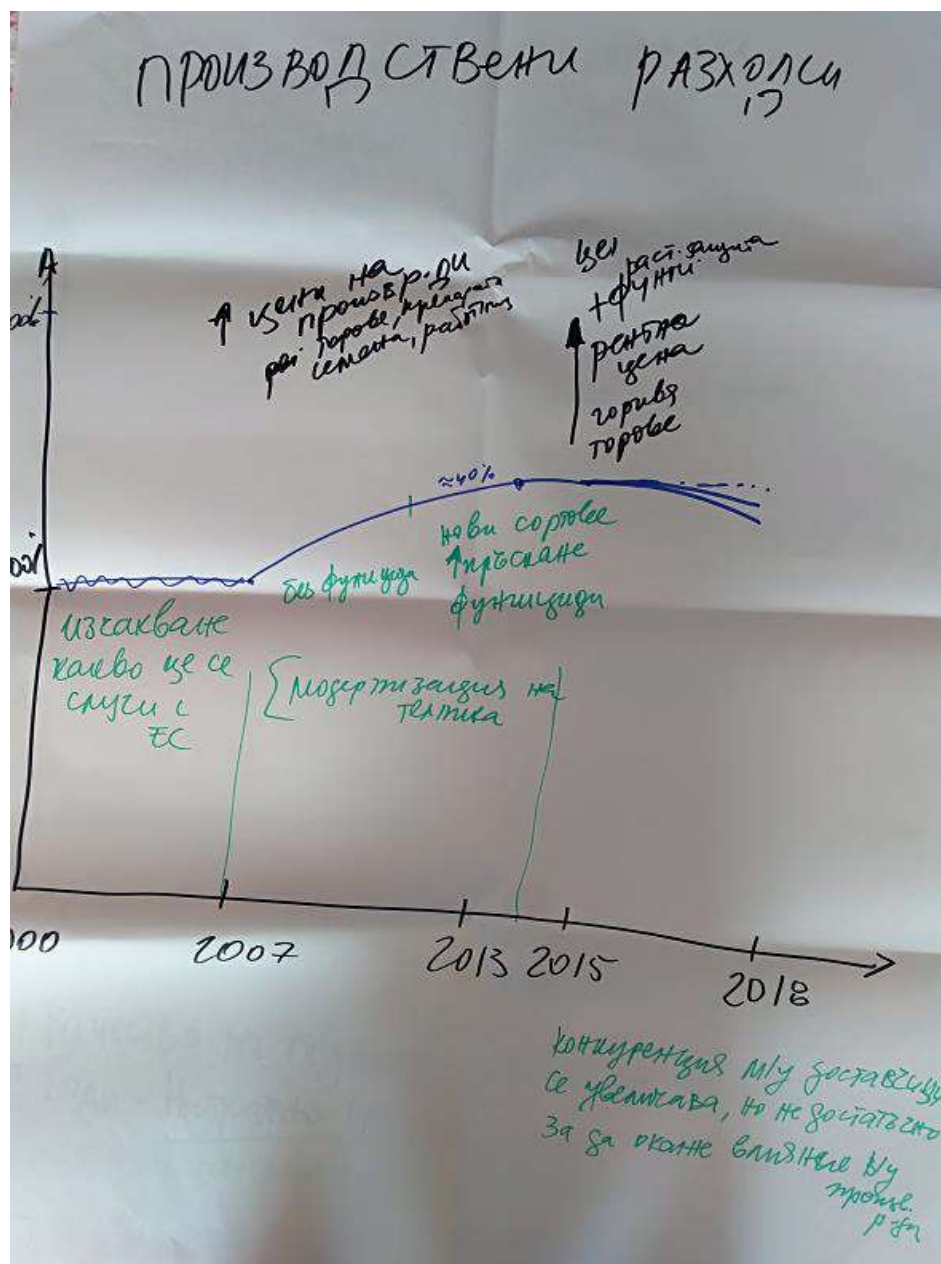 ПРОИЗВОДСТВЕНИ РАЗХОДИ
↑ цени на
произв р-ди
торове, препарати
семена, работниц
раст. защита
+ фунги.
рентна
цена
горива
торове
≈40%
без фунгицида
нови сортове
↑ пръскане
фунгициди
изчакване
какво ще се
случи с
ЕС
[модернизация на
техника
2007
2013
2015
2018
конкуренция м/у доставчици
се увеличава, но не достатъчно
за да окаже влияние в/у
произв.
р-ди